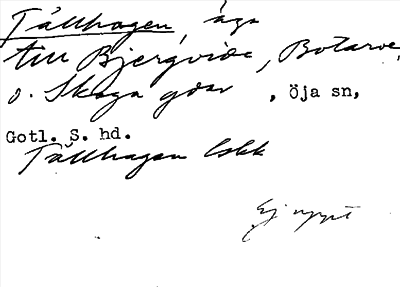 Tällhagen, äga
till Bjergvide, Botarve,
o. Skoga gdar, Öja sn,
Gotl. S. hd.
Tällhagen Cskk
Ej uppt